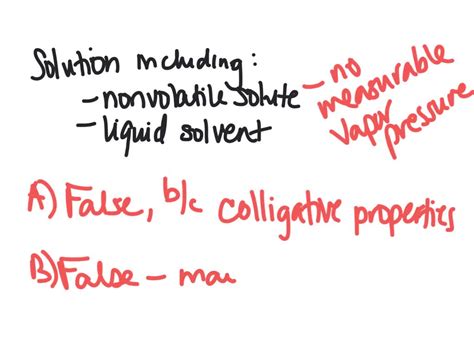 Solution including:
- nonvolatile solute - no measurable vapor pressure
- liquid solvent
A) False, b/c colligative properties
B) False - mau